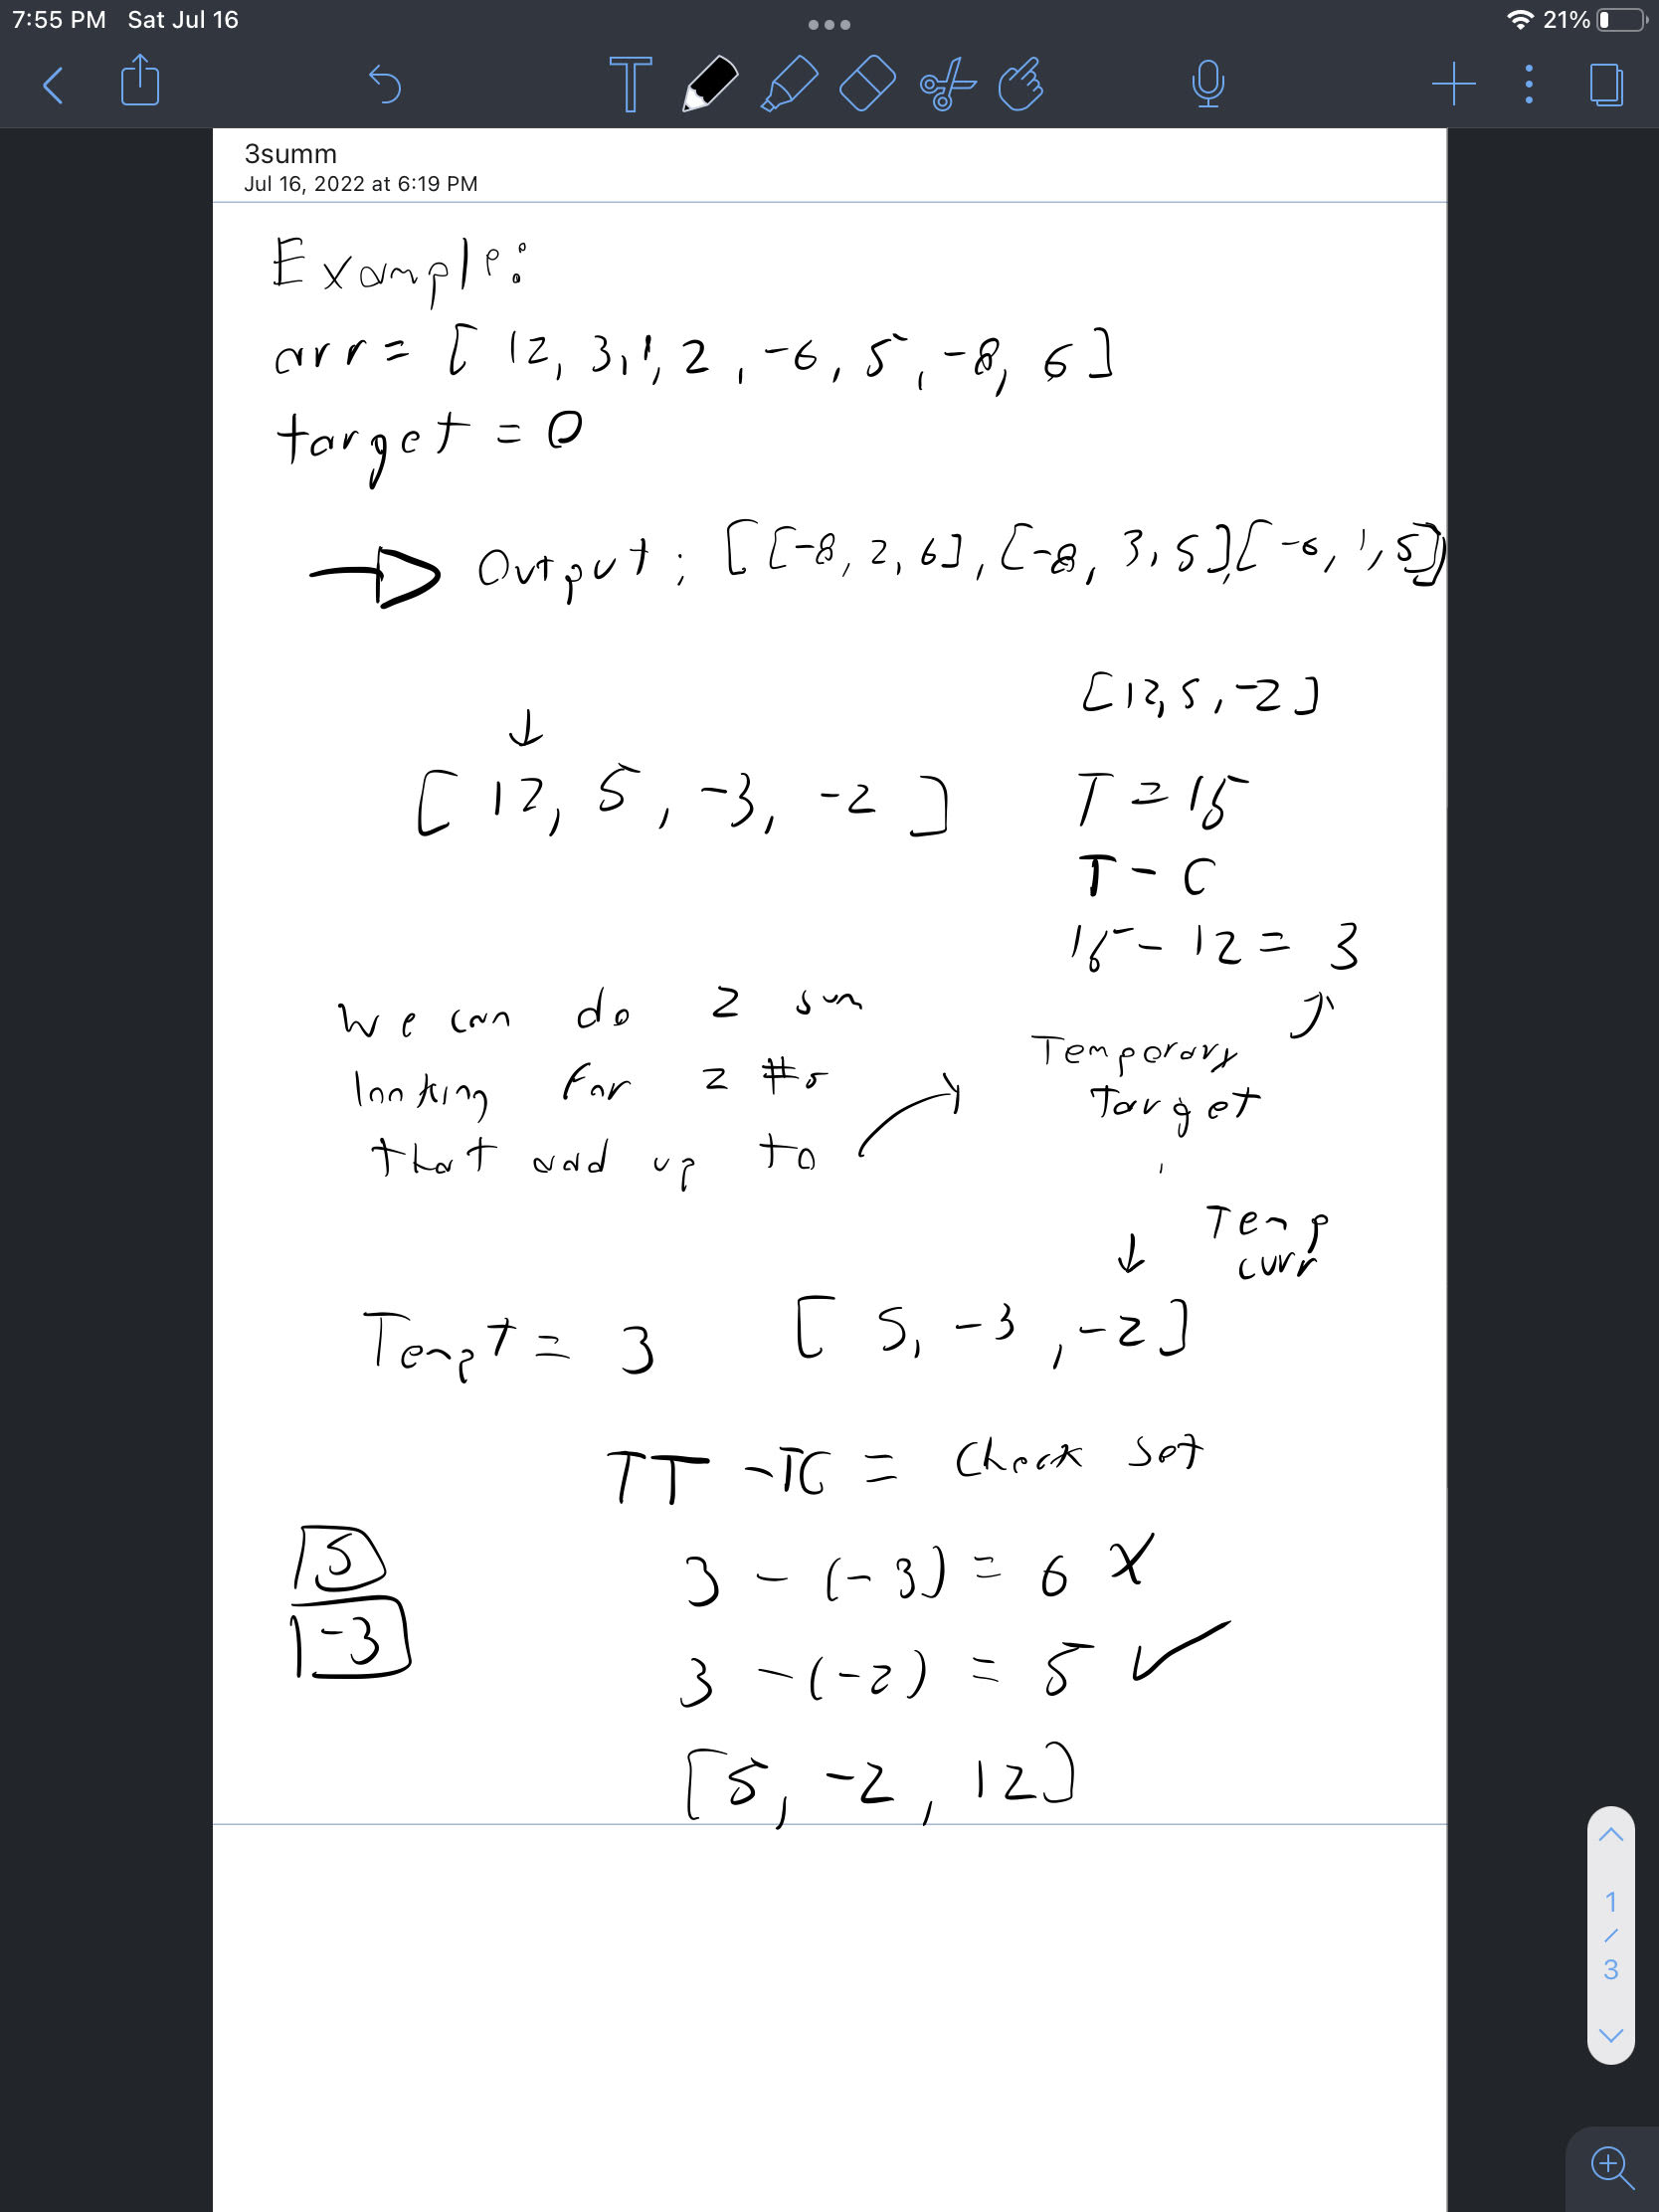 7:55 PM Sat Jul 16
21%
T
3summ
Jul 16, 2022 at 6:19 PM
Example:
arr = [ 12, 3, 1, 2, -6, 5, -8, 6 ]
target = 0
Output: [[-8, 2, 6], [-8, 3, 5], [-6, 1, 5]]
[12, 5, -2]
[ 12, 5, -3, -2 ]
T = 15
T - C
15 - 12 = 3
We can do 2 sum
looking for 2 #s
that add up to
Temporary
Target
Temp
curr
Tempt = 3 [ 5, -3, -2]
TT - TC = Check Set
5
-3
3 - (-3) = 6 X
3 - (-2) = 5 ✓
[5, -2, 12]
1
/
3